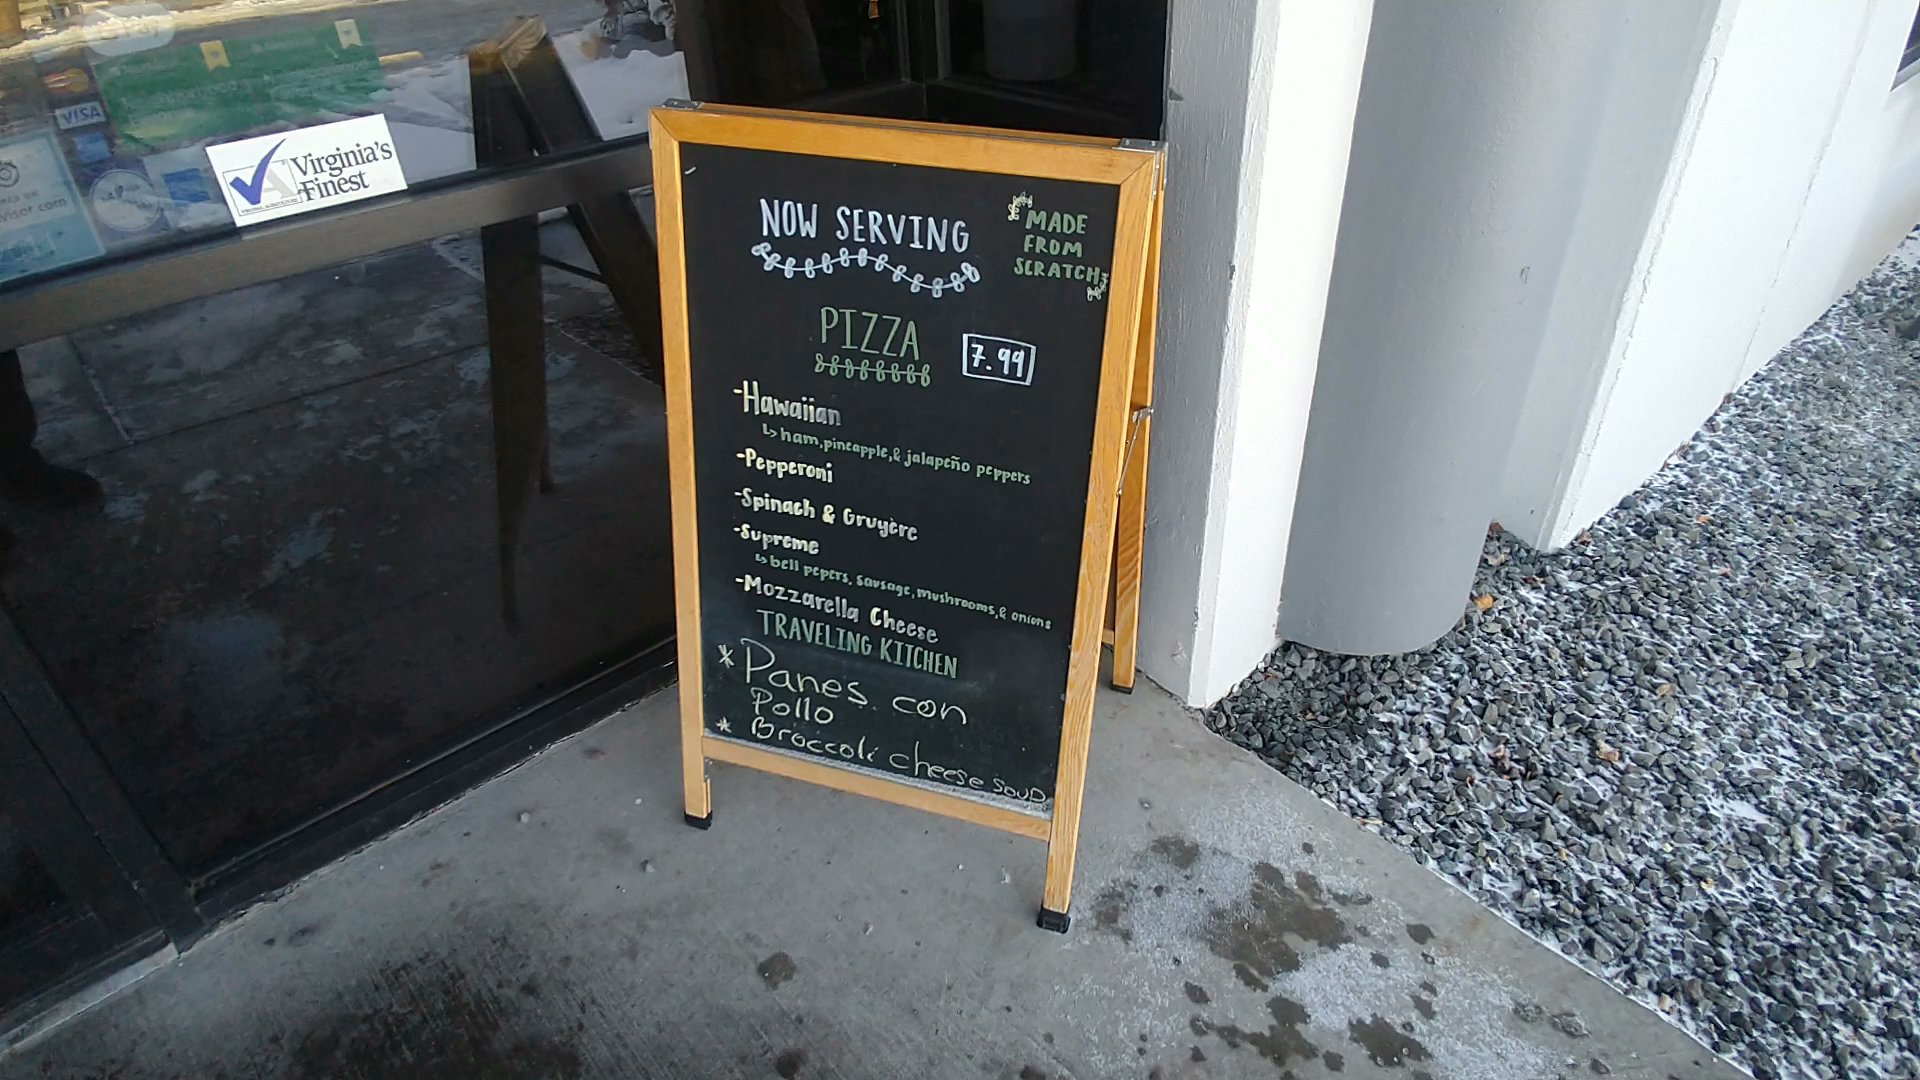 VISA
Virginia's
Finest
visor com
NOW SERVING
MADE
FROM
SCRATCH
PIZZA
7.99
-Hawaiian
↳ ham, pineapple, & jalapeño peppers
-Pepperoni
-Spinach & Gruyère
-Supreme
↳ bell pepers, sausage, mushrooms, & onions
-Mozzarella Cheese
TRAVELING KITCHEN
* Panes con
Pollo
* Broccoli cheese soup